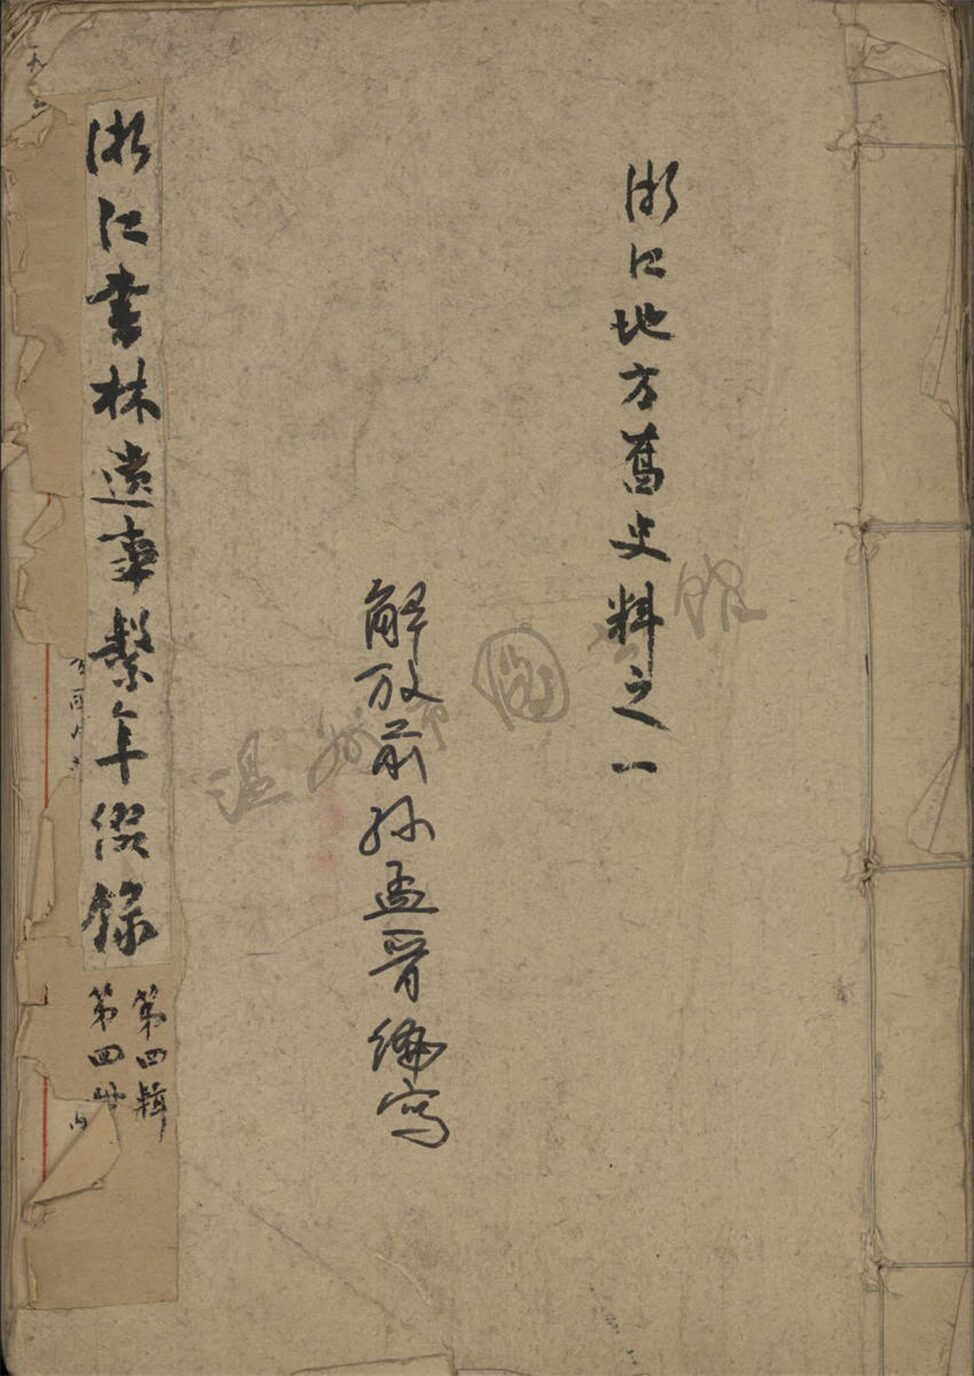 浙江地方舊史料之一
解放前孙孟晋编寫
浙江書林遺事繫年綴錄
第四輯
第四册
温州市圖書館